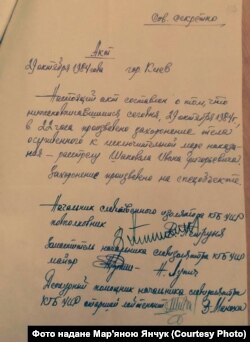 Сов. секретно
Акт
29 октября 1984 года гор Киев
Настоящий акт составлен о том, что
нижеподписавшимися сегодня, 29 октября 1984г
в 22 часа произведено захоронение тела
осужденного к исключительной мере наказа-
ния - расстрелу Шаповала Ивана Григорьевича
Захоронение произведено на спецобъекте.
Начальник следственного изолятора КГБ УССР
подполковник
Заместитель начальника следизолятора КГБ УССР
майор
Дежурный помощник начальника следизолятора
КГБ УССР старший лейтенант
Фото надане Мар'яною Янчук (Courtesy Photo)